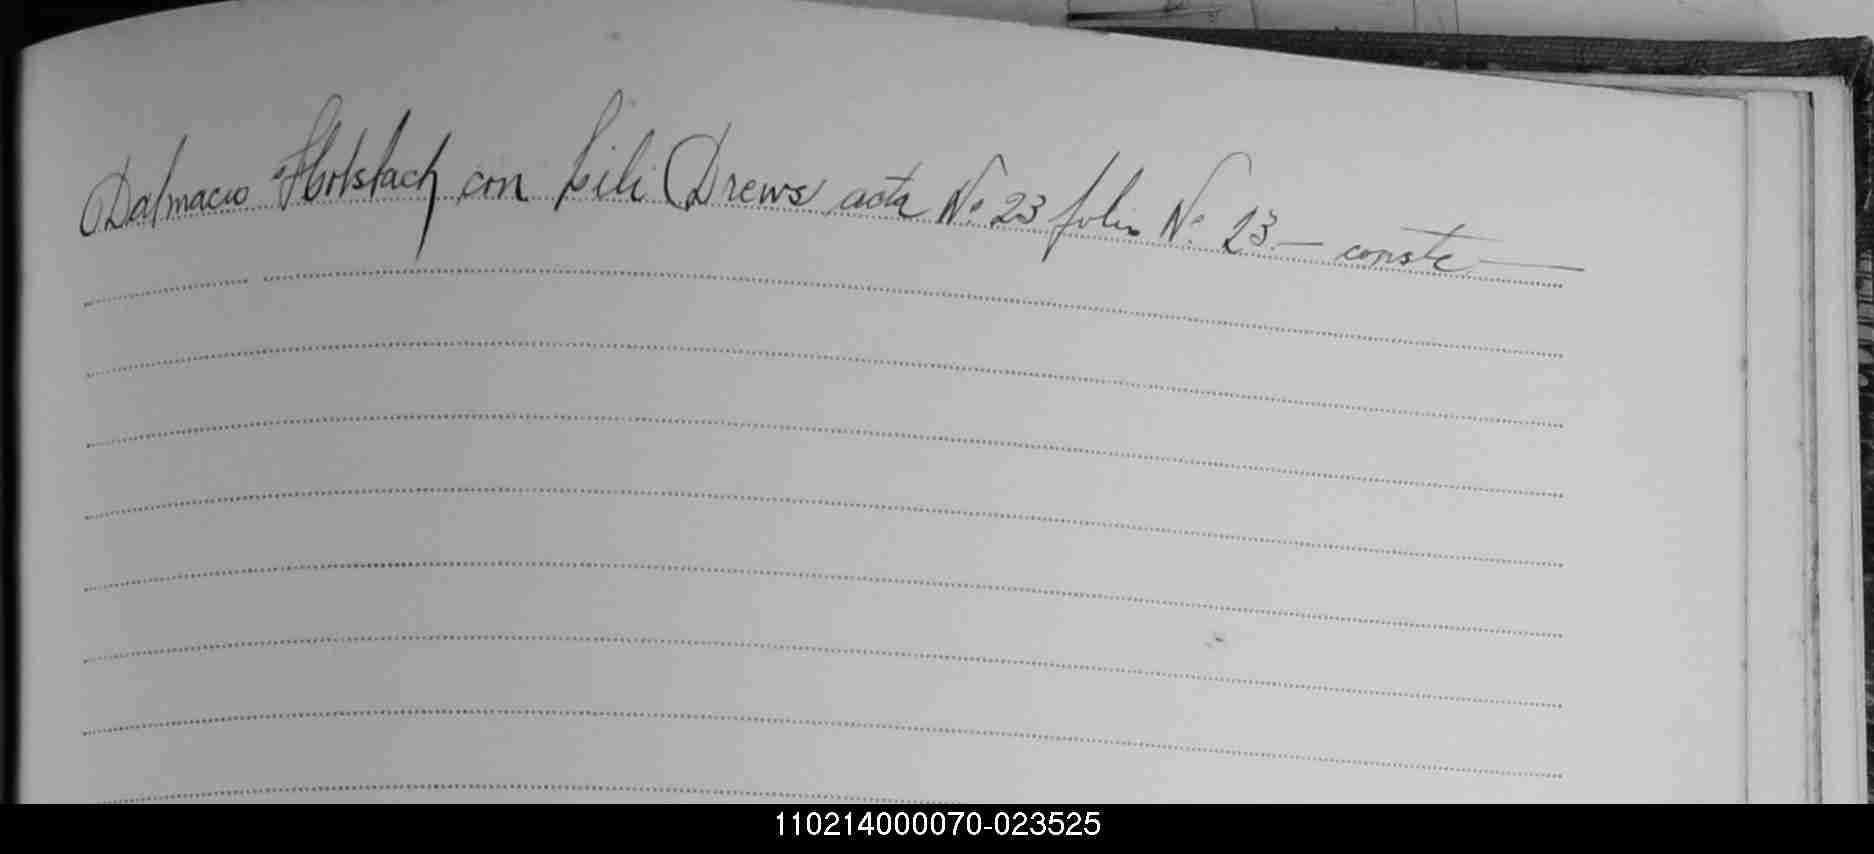 Dalmacio Hotslach con Lili Drews acta Nº 23 folio Nº 23 — conste —
110214000070-023525